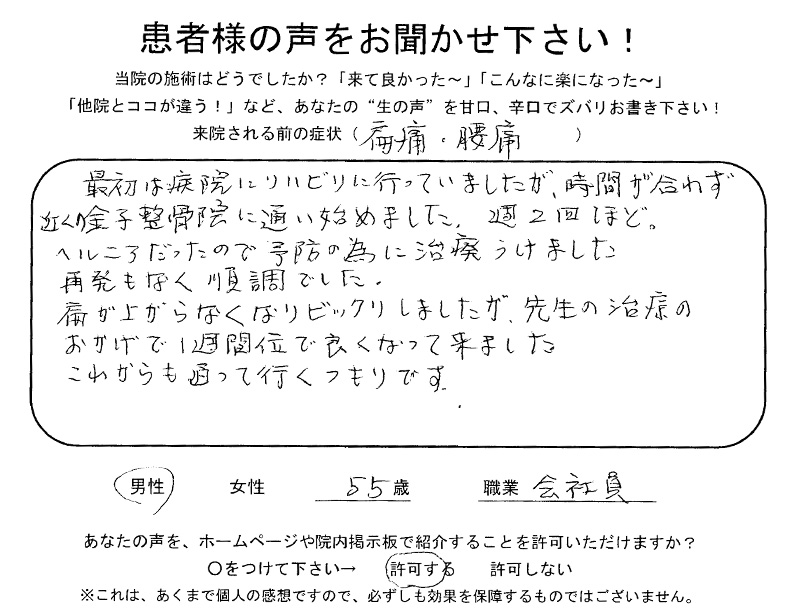 患者様の声をお聞かせ下さい！
当院の施術はどうでしたか？「来て良かった～」「こんなに楽になった～」
「他院とココが違う！」など、あなたの“生の声”を甘口、辛口でズバリお書き下さい！
来院される前の症状（肩痛・腰痛　）
最初は病院にリハビリに行っていましたが、時間が合わず
近くの金子整骨院に通い始めました。週2回ほど。
ヘルニアだったので予防の為に治療うけました
再発もなく順調でした。
肩が上がらなくなりビックリしましたが、先生の治療の
おかげで1週間位で良くなって来ました
これからも通って行くつもりです。
男性　女性　55歳　職業　会社員
あなたの声を、ホームページや院内掲示板で紹介することを許可いただけますか？
〇をつけて下さい→　許可する　許可しない
※これは、あくまで個人の感想ですので、必ずしも効果を保障するものではございません。